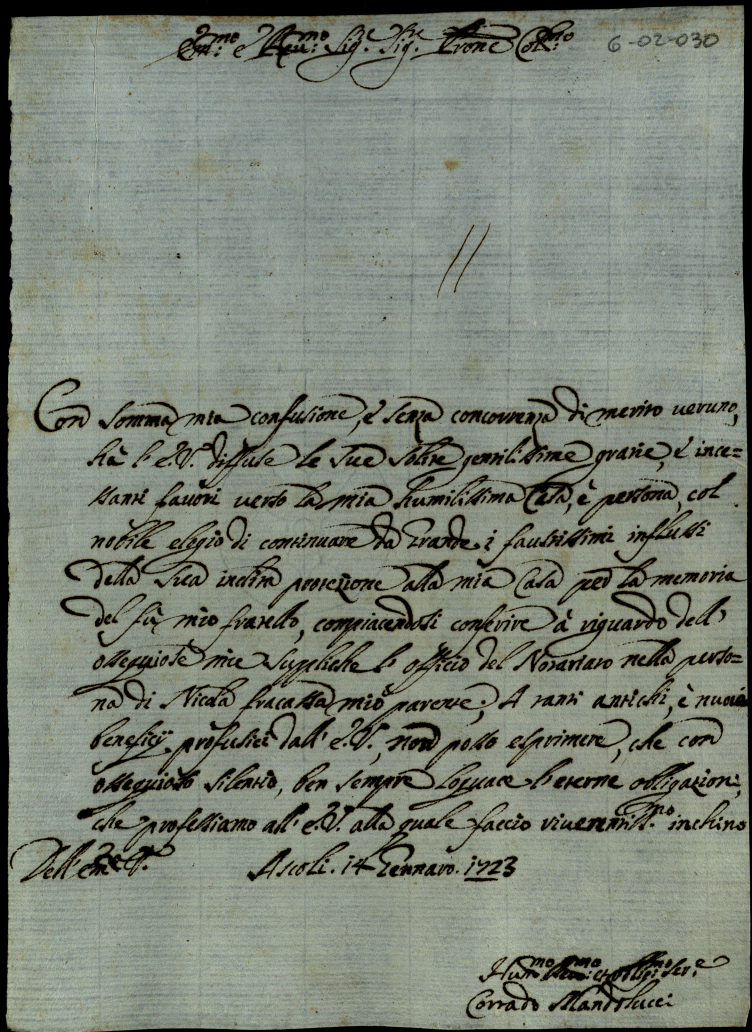 Em.mo e Reu.mo Sig.re Sig.re Prone Col.mo
6-02-030
Con somma mia confusione, è senza concorrenza di merito ueruno,
hà l'E.V. diffuse le sue solite gentilissime grazie, è ince=
ssanti fauori uerso la mia humilissima Casa, è persona, col
nobile elogio di continuare da grande i faustissimi influssi
della sua inclita protezione alla mia Casa per la memoria
del fù mio fratello, compiacendosi conferire à riguardo dell'
ossequiose mie suppliche l'officio del Notariato nella perso=
na di Nicola fracassa mio parente; A tanti antichi, è nuoui
beneficij profusici dall'E.V., non posso esprimere, che con
ossequioso silentio, ben sempre loquace l'eterne obligationi,
che professiamo all'E.V. alla quale faccio riuerentiss.mo inchino
Dell'Em.za V.
Ascoli. 14 Gennaro. 1723
Hum.mo Deu.mo et oblig.mo Ser.e
Corrado Mandolucci